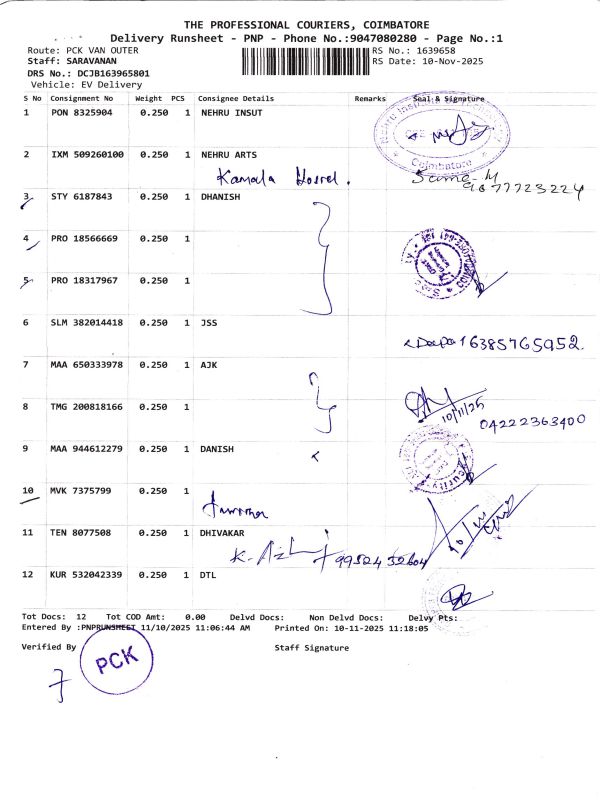 THE PROFESSIONAL COURIERS, COIMBATORE
Delivery Runsheet - PNP - Phone No.:9047080280 - Page No.:1
Route: PCK VAN OUTER RS No.: 1639658
Staff: SARAVANAN RS Date: 10-Nov-2025
DRS No.: DCJB163965801
Vehicle: EV Delivery
S No Consignment No Weight PCS Consignee Details Remarks Seal & Signature
1 PON 8325904 0.250 1 NEHRU INSUT
Coimbatore
2 IXM 509260100 0.250 1 NEHRU ARTS
Kamala Hostel.
9877723224
3 STY 6187843 0.250 1 DHANISH
4 PRO 18566669 0.250 1
5 PRO 18317967 0.250 1
6 SLM 382014418 0.250 1 JSS
16385765952
7 MAA 650333978 0.250 1 AJK
8 TMG 200818166 0.250 1
10/11/25
04222363400
9 MAA 944612279 0.250 1 DANISH
Security
10 MVK 7375799 0.250 1
11 TEN 8077508 0.250 1 DHIVAKAR
12 KUR 532042339 0.250 1 DTL
Tot Docs: 12 Tot COD Amt: 0.00 Delvd Docs: Non Delvd Docs: Delvy Pts:
Entered By :PNPRUNSHEET 11/10/2025 11:06:44 AM Printed On: 10-11-2025 11:18:05
Verified By Staff Signature
PCK